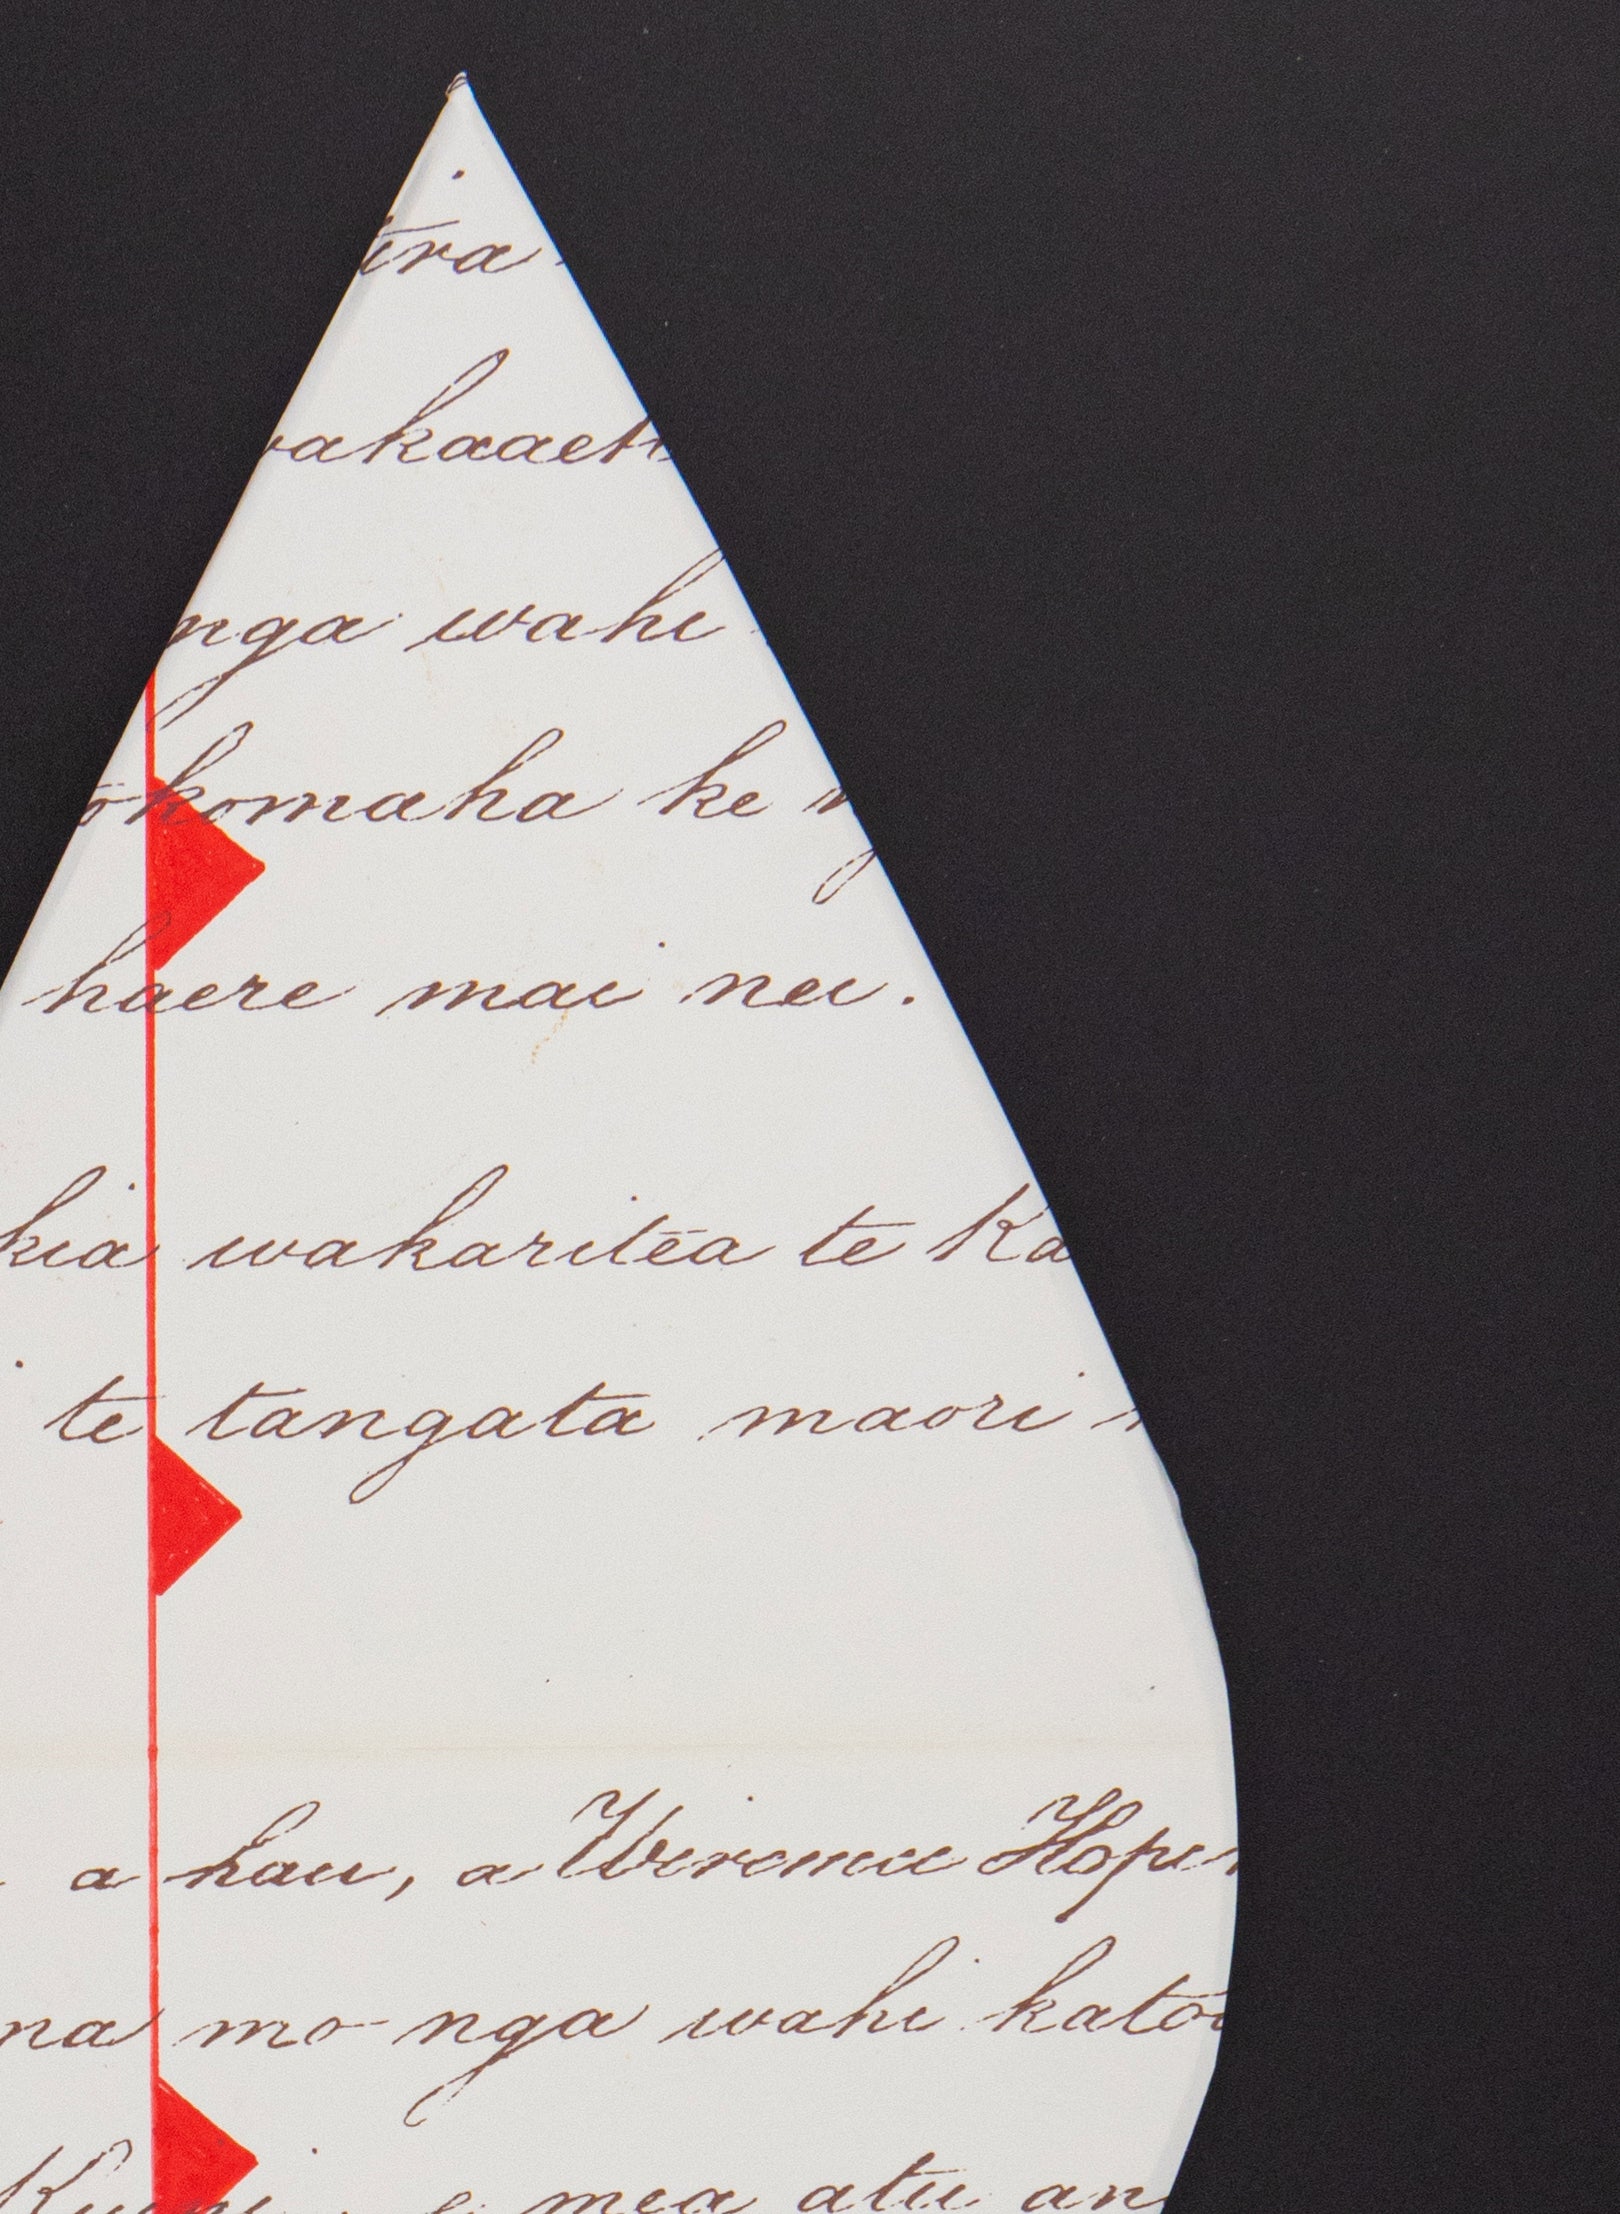 tira
wakaaeti
nga wahi
okomaha ke n
haere mai nei.
kia wakaritea te Ka
te tangata maori
a hau, a Wiremu Hopi
na mo nga wahi kato
Kuini, e mea atu an